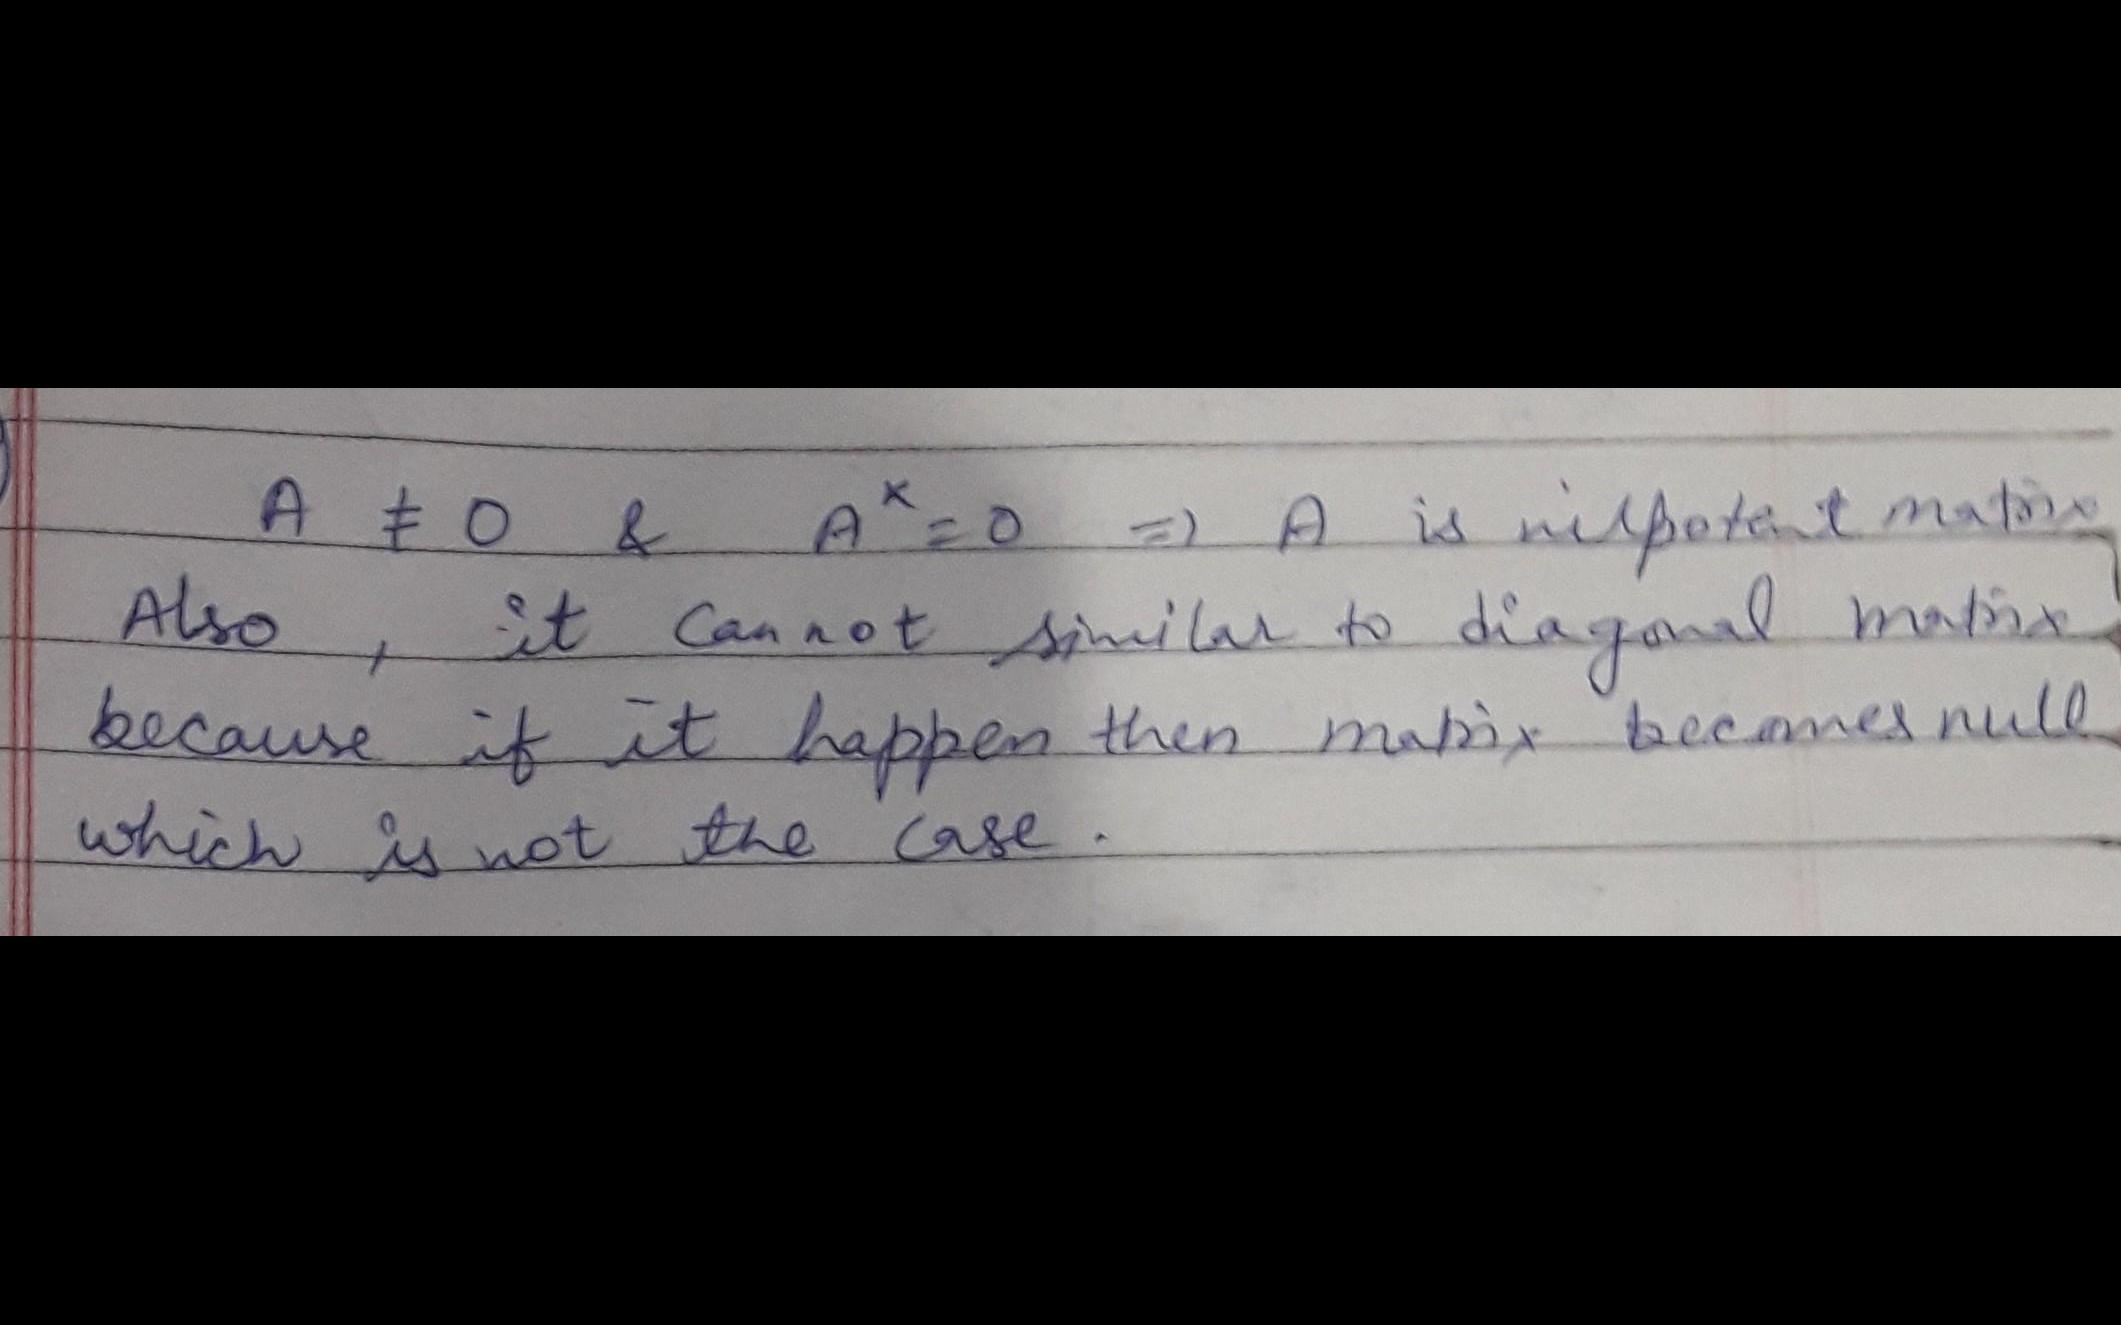 A ≠ 0 & Aˣ = 0 => A is nilpotent matrix
Also, it cannot similar to diagonal matrix
because if it happen then matrix becomes null
which is not the case.